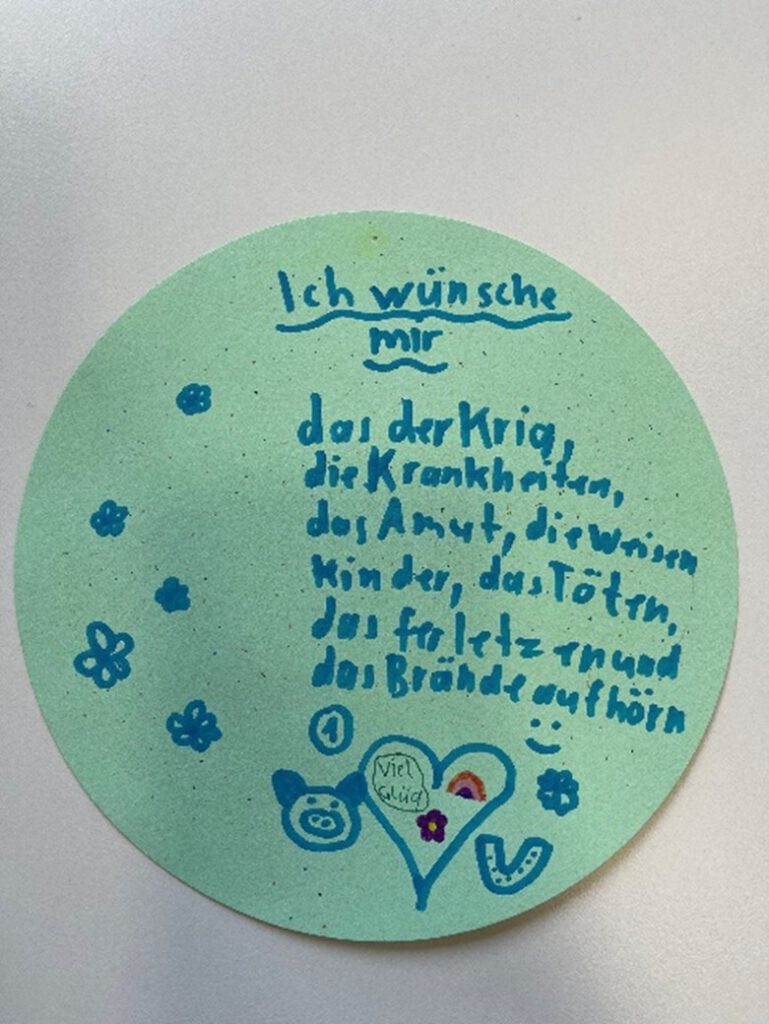 Ich wünsche
mir
das der Krig,
die Krankheiten,
das Amut, die weisen
kinder, das Töten,
das ferletzen und
das Brände aufhörn
1
viel
Glüq